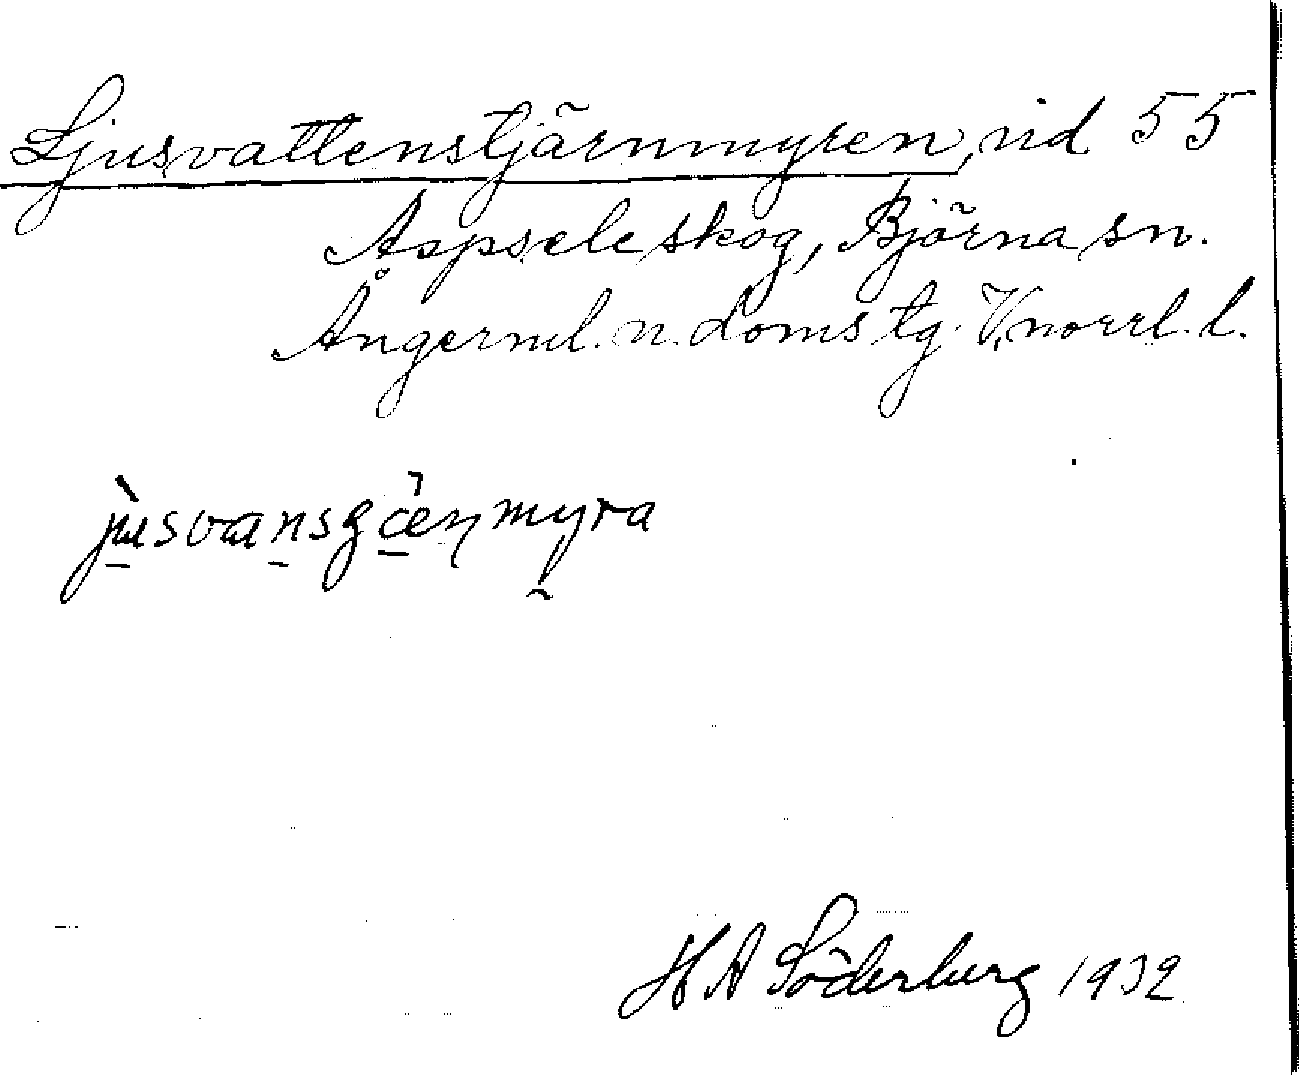 Ljusvattenstjärnmyren, vid 55
Aspsele skog, Björna sn.
Ångerml. n. doms tg. V. norrl. l.
jusvansgænmyra
H A Söderberg 1932